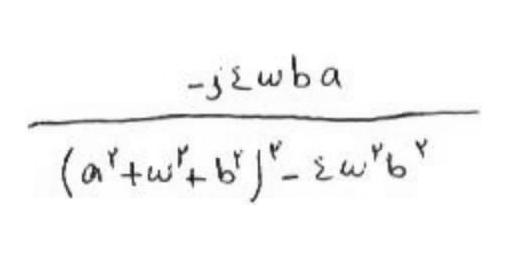 -j٤ωba
(a^٢+ω^٢+b^٢)^٢-٤ω^٢b^٢